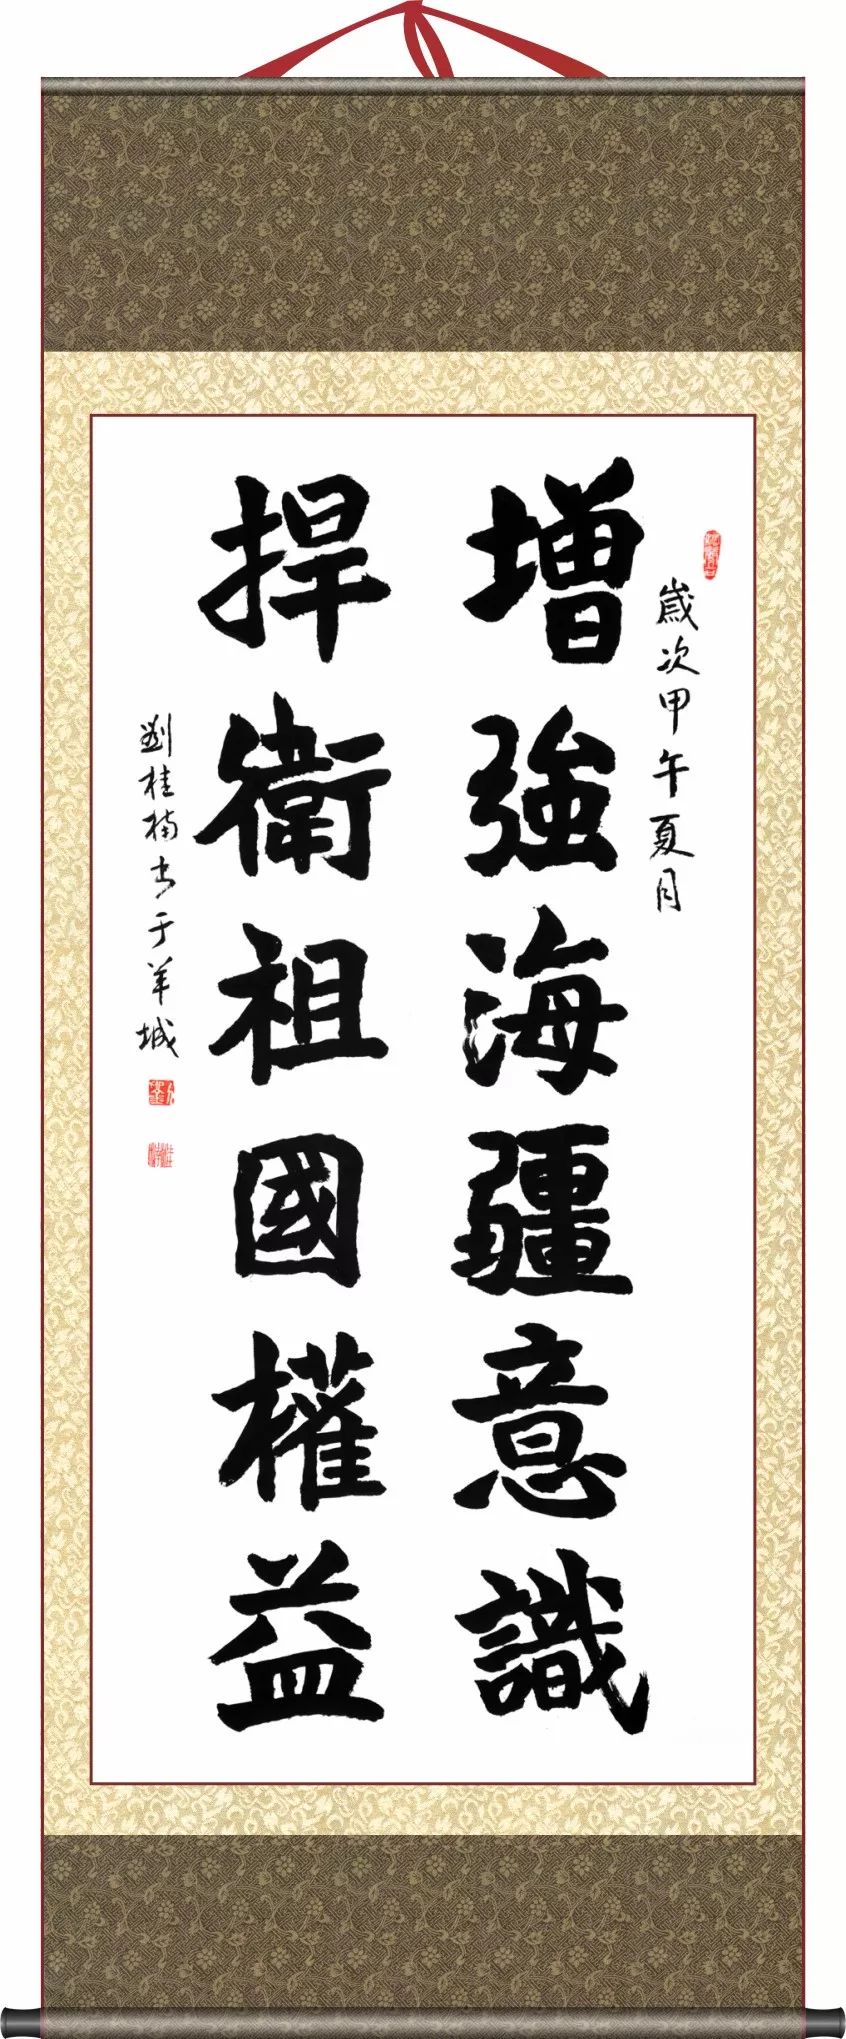 歲次甲午夏月
增強海疆意識
捍衛祖國權益
劉桂楠书于羊城